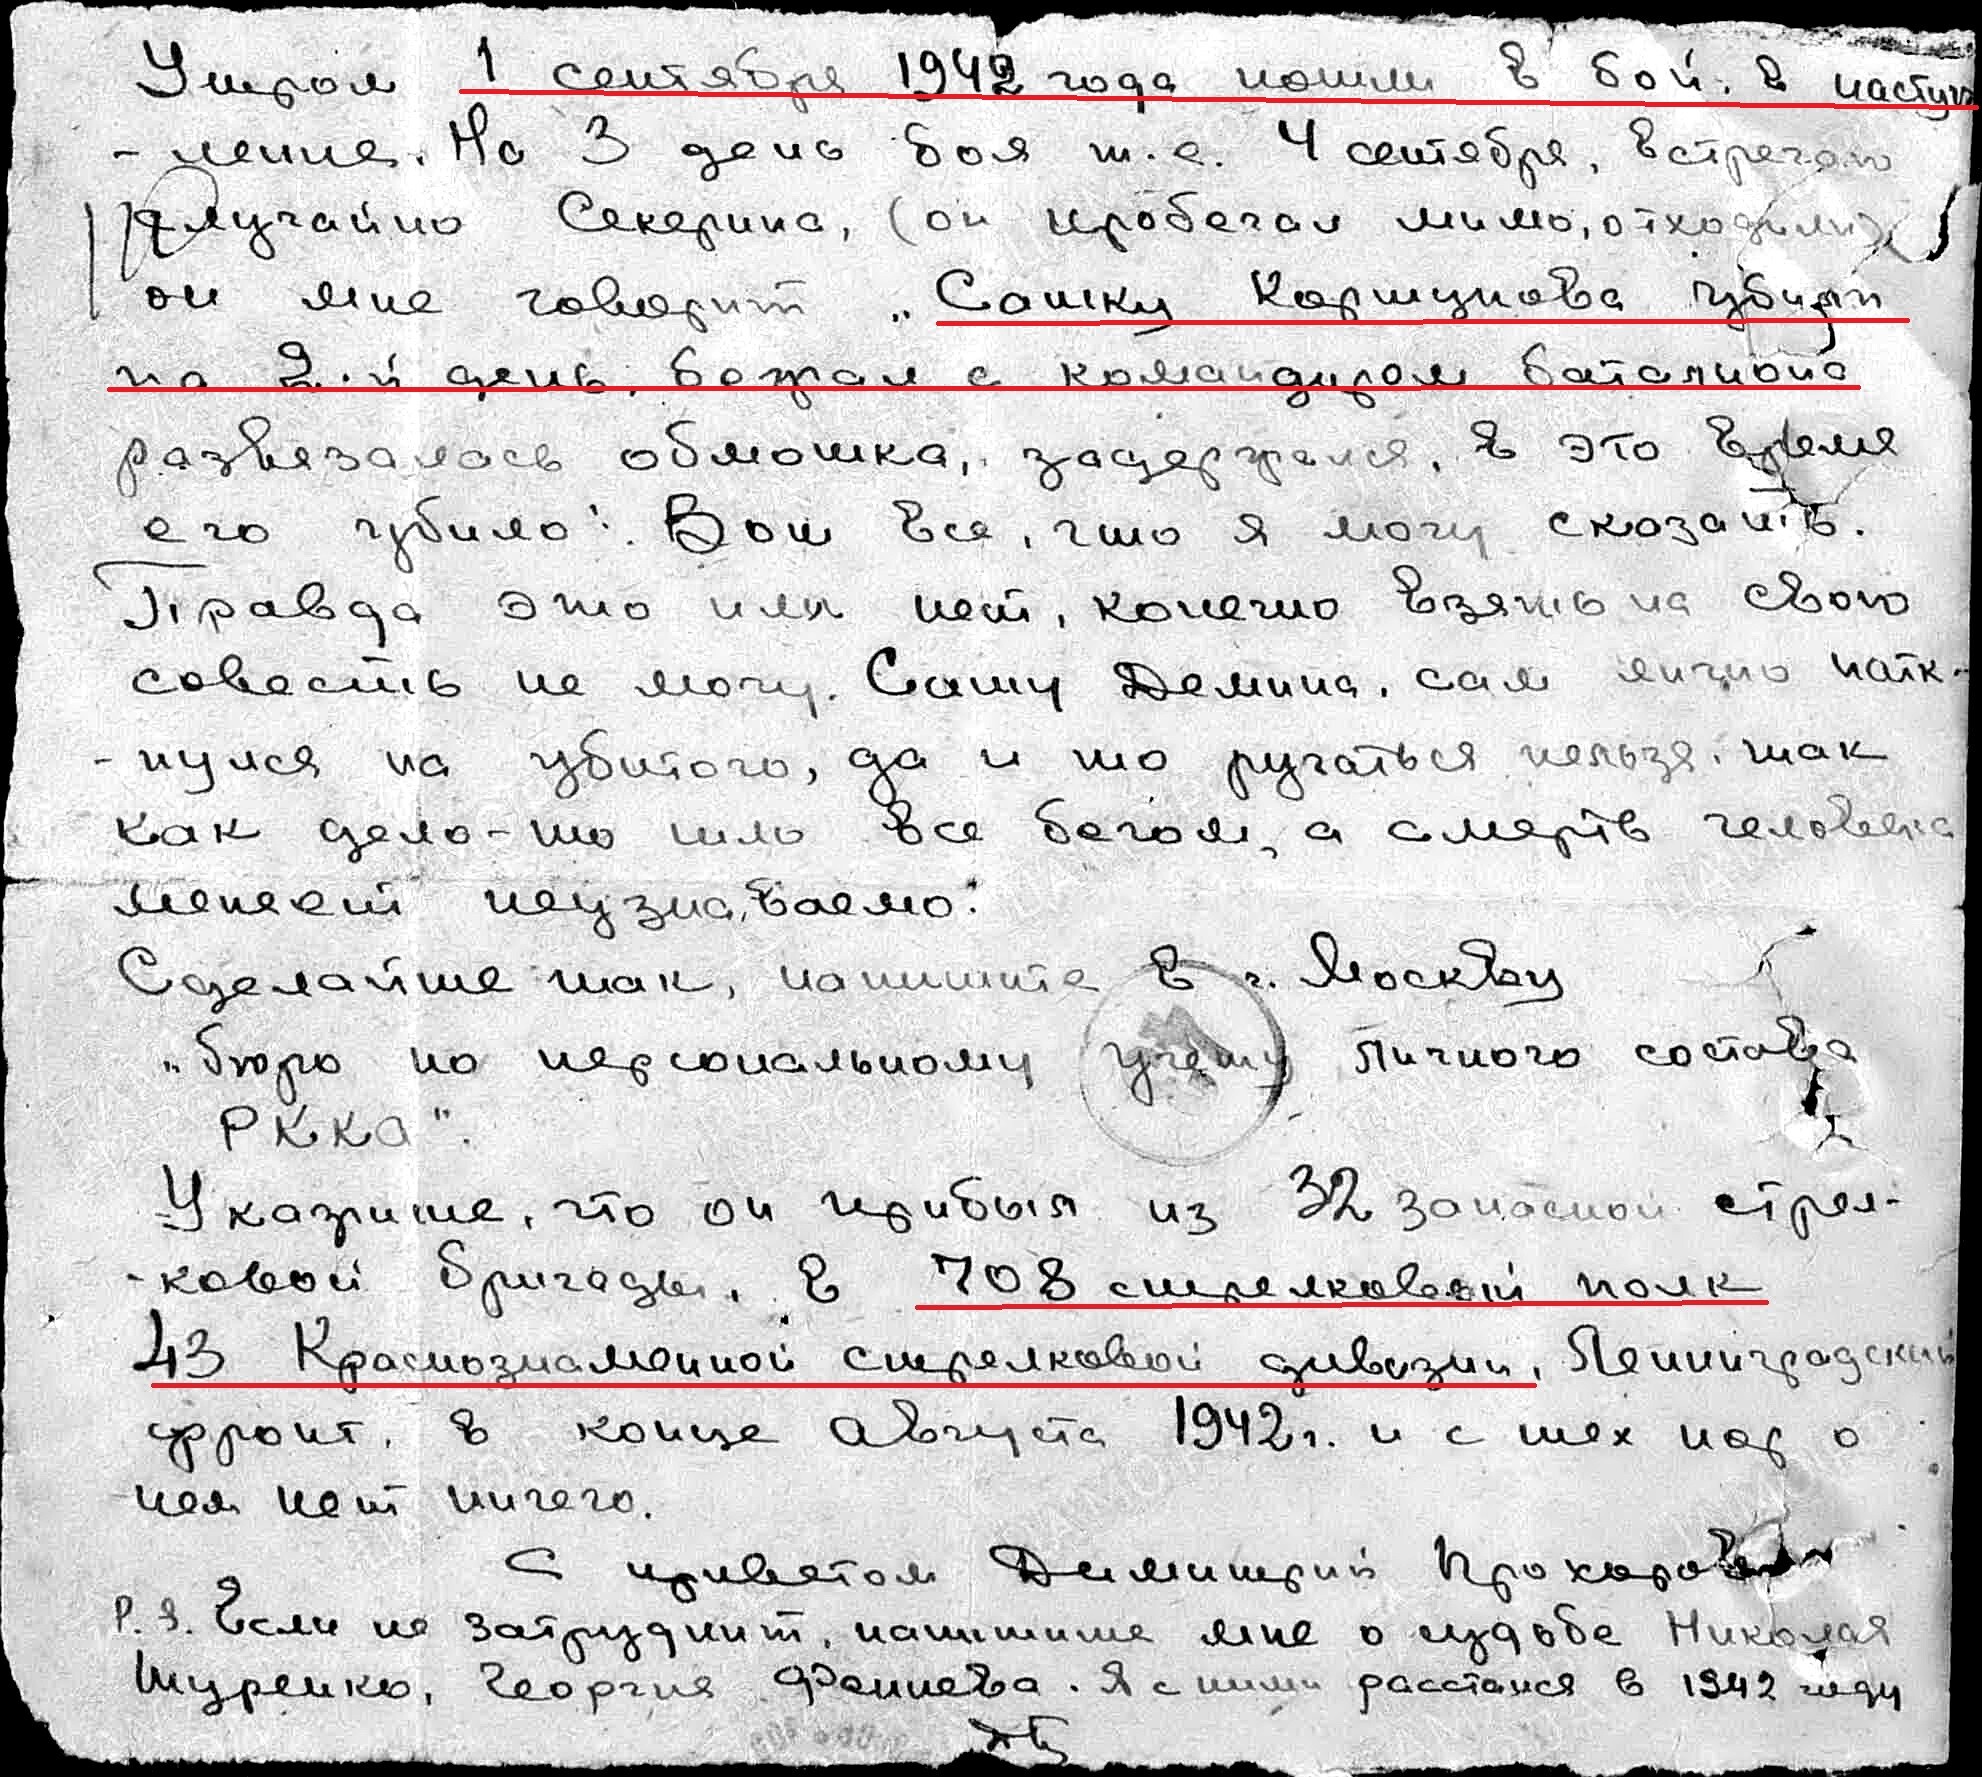 Утром 1 сентября 1942 года пошли в бой. в наступ
- ление. На 3 день боя т.е. 4 сентября, встречаю
случайно Секерина, (он пробегал мимо, отходили)
он мне говорит „Сашку Коршунова убили
на 2-й день, бежал с командиром баталиона
развязалась обмотка, задержался, в это время
его убило". Вот все, что я могу сказать.
Правда это или нет, конечно взять на свою
совесть не могу. Сашу Демина, сам лично натк-
- нулся на убитого, да и то ручаться нельзя. так
как дело-то шло все бегом, а смерть человека
меняет неузнаваемо.
Сделайте так, напишите в г. Москву
„Бюро по персональному учету личного состава
РККА".
Укажите, что он прибыл из 32 запасной стрел-
- ковой бригады, в 708 стрелковый полк
43 Краснознаменной стрелковой дивизии, Ленинградский
фронт, в конце августа 1942г. и с тех пор о
нем нет ничего.
С приветом Димитрий Прохоров
P.S. Если не затруднит, напишите мне о судьбе Николая
Шуренко, Георгия . Я с ними расстался в 1942 году